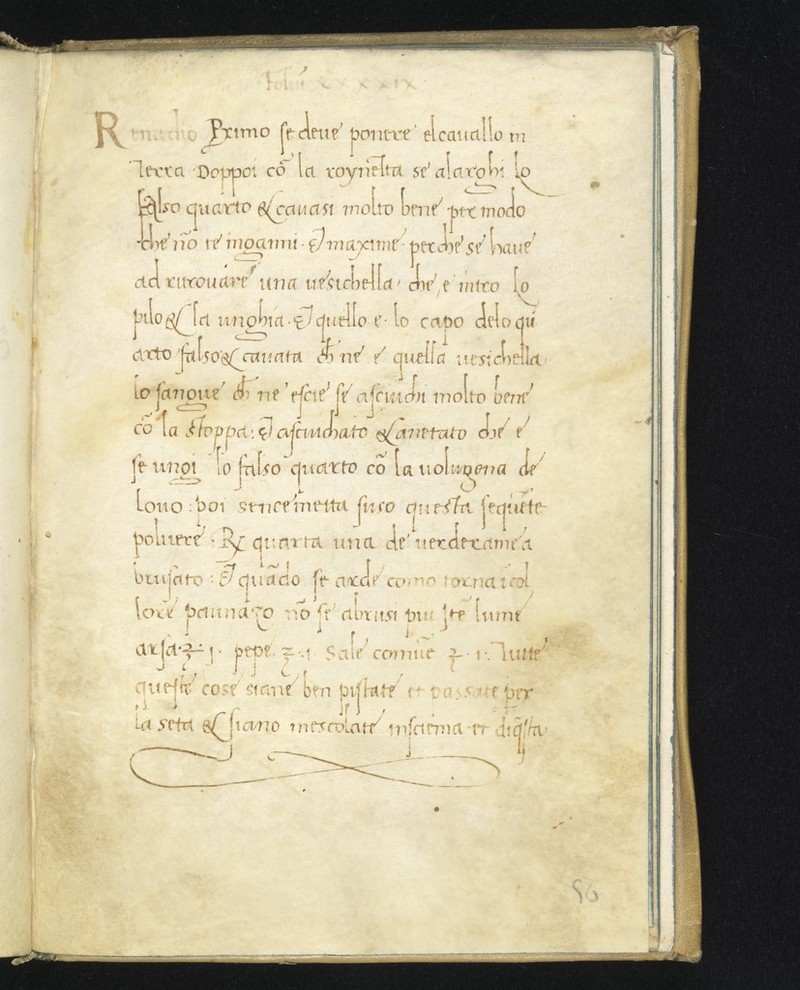 foliū xxxxix
Remedio Primo se deue ponere el cauallo in
terra Doppoi cō la roynetta se alarghi lo
falso quarto & cauasi molto bene per modo
che nō te inganni · Et maxime · perche se haue
ad ritrouare una uesichella che e intro lo
pilo & la unghia · Et quello e · lo capo delo qu
arto falso & cauata ch ne e quella uesichella
lo sangue ch ne escie se asciuchi molto bene
cō la stoppa : Et asciuchato & anettato che e
se ungi lo falso quarto cō la uolugena de
louo : poi sence metta suso questa sequēte
poluere · Rx quarta una de uerderame a
brusato : Et quādo se arde como torna ī col
lore paunazo nō se abrusi piu Itē lume
arsa · ℥ · j · pepe ℥ · i Sale comūe ℥ · i · Tutte
queste cose siane ben pistate et passate per
la seta & siano mescolate insciema et diq̄sta
56